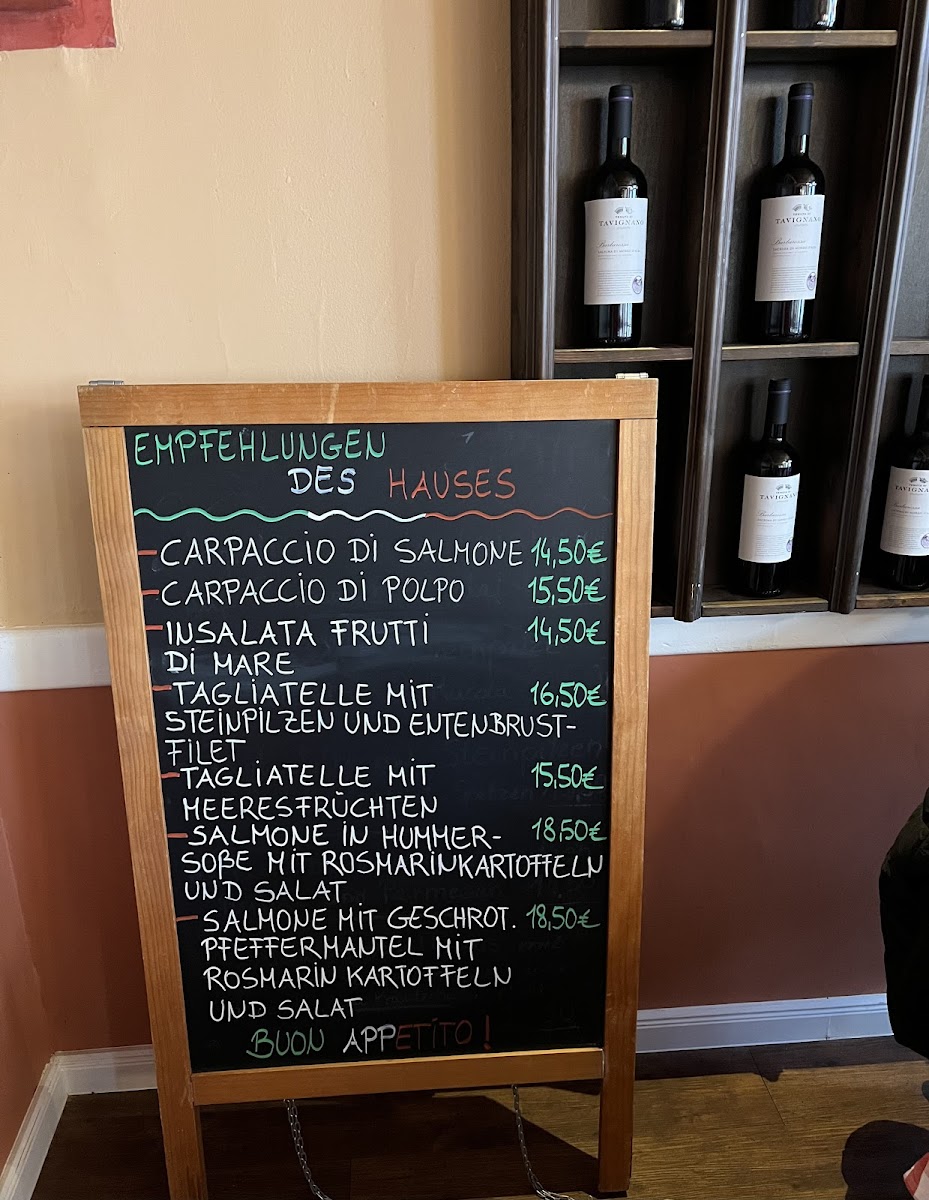 TAVIGNANO
TAVIGNANO
TAVIGNANO
TAVIGNAN
EMPFEHLUNGEN
DES HAUSES
- CARPACCIO DI SALMONE 14,50€
- CARPACCIO DI POLPO 15,50€
- INSALATA FRUTTI 14,50€
DI MARE
- TAGLIATELLE MIT 16,50€
STEINPILZEN UND ENTENBRUST-
FILET
- TAGLIATELLE MIT 15,50€
MEERESFRÜCHTEN
- SALMONE IN HUMMER- 18,50€
SOßE MIT ROSMARINKARTOFFELN
UND SALAT
- SALMONE MIT GESCHROT. 18,50€
PFEFFERMANTEL MIT
ROSMARIN KARTOFFELN
UND SALAT
BUON APPETITO!